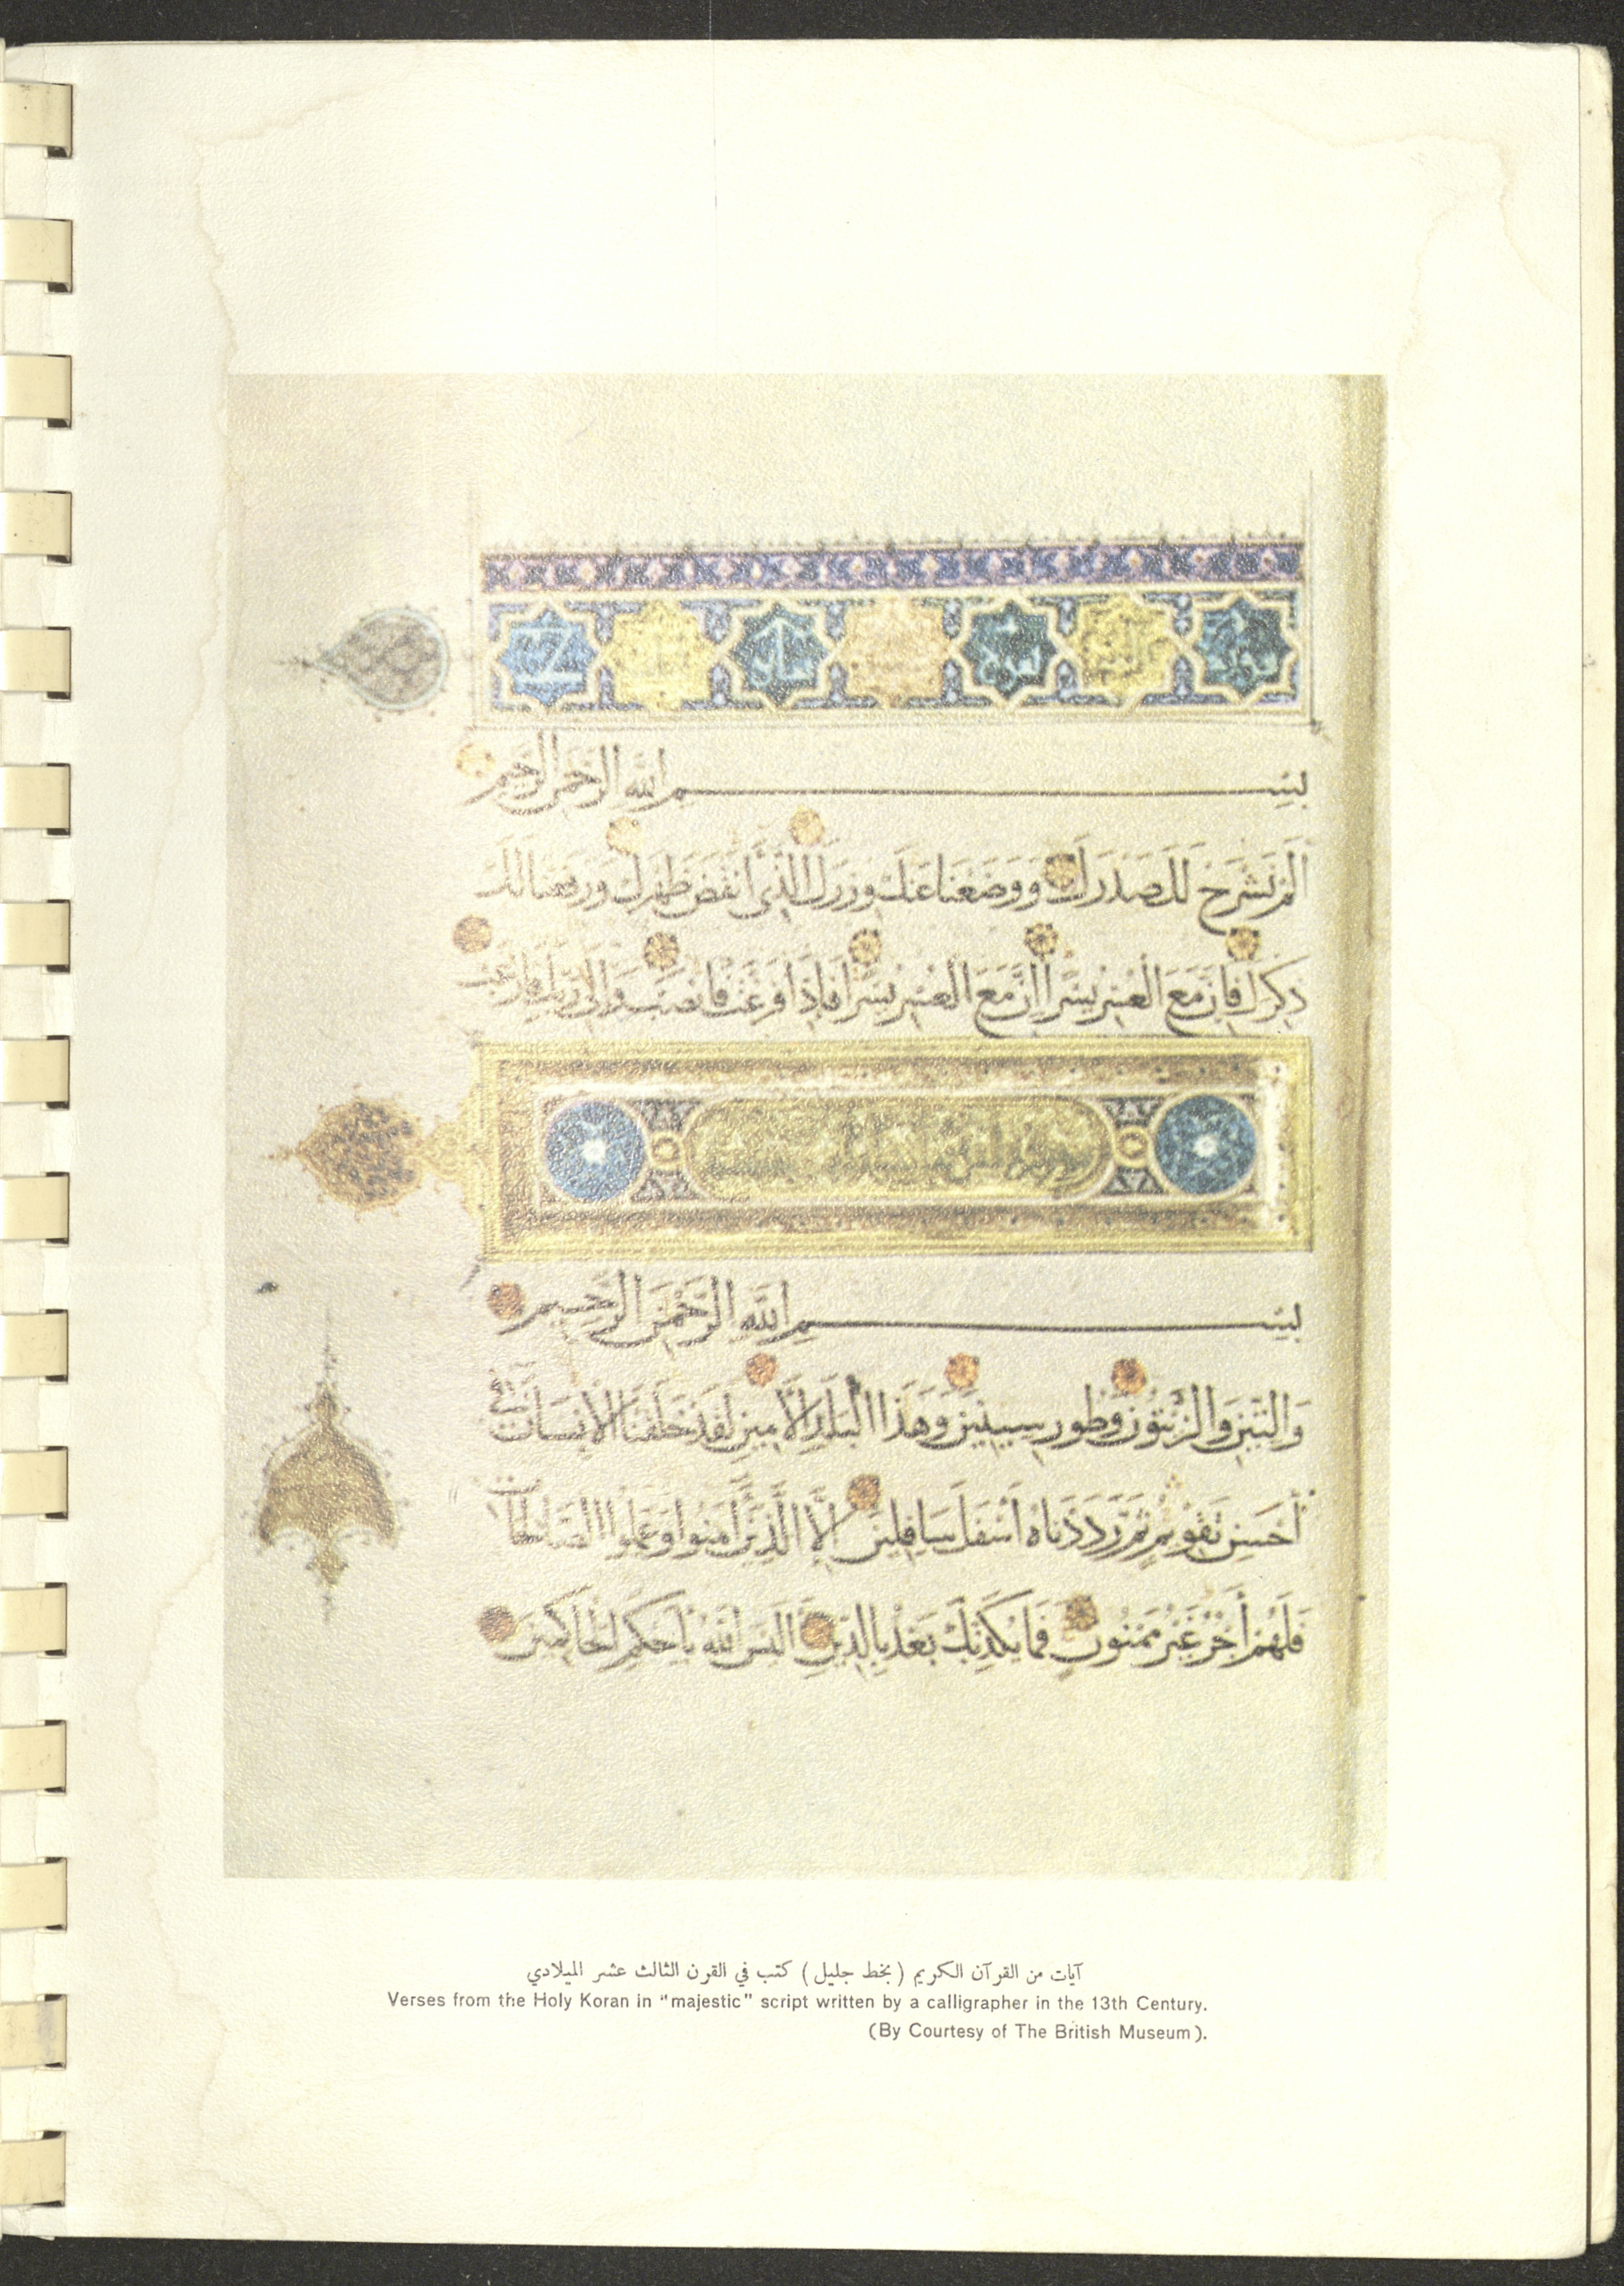 بسم الله الرحمن الرحيم
أَلَمْ نَشْرَحْ لَكَ صَدْرَكَ وَوَضَعْنَا عَنْكَ وِزْرَكَ الَّذِي أَنْقَضَ ظَهْرَكَ وَرَفَعْنَا لَكَ
ذِكْرَكَ فَإِنَّ مَعَ الْعُسْرِ يُسْرًا إِنَّ مَعَ الْعُسْرِ يُسْرًا فَإِذَا فَرَغْتَ فَانْصَبْ وَإِلَى رَبِّكَ فَارْغَبْ
بسم الله الرحمن الرحيم
وَالتِّينِ وَالزَّيْتُونِ وَطُورِ سِينِينَ وَهَذَا الْبَلَدِ الْأَمِينِ لَقَدْ خَلَقْنَا الْإِنْسَانَ فِي
أَحْسَنِ تَقْوِيمٍ ثُمَّ رَدَدْنَاهُ أَسْفَلَ سَافِلِينَ إِلَّا الَّذِينَ آمَنُوا وَعَمِلُوا الصَّالِحَاتِ
فَلَهُمْ أَجْرٌ غَيْرُ مَمْنُونٍ فَمَا يُكَذِّبُكَ بَعْدُ بِالدِّينِ أَلَيْسَ اللَّهُ بِأَحْكَمِ الْحَاكِمِينَ
آيات من القرآن الكريم ( بخط جليل ) كتب في القرن الثالث عشر الميلادي
Verses from the Holy Koran in "majestic" script written by a calligrapher in the 13th Century.
(By Courtesy of The British Museum).